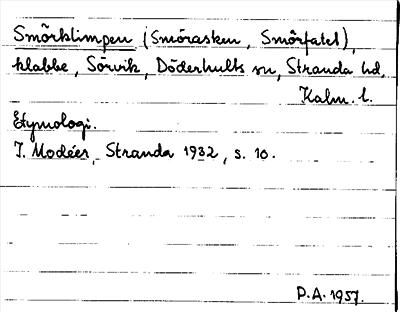 Smörklimpen (Smörasken, Smörfatet),
klabbe, Sörvik, Döderhults sn, Stranda hd.
Kalm. l.
Etymologi.
I. Modéer, Stranda 1932, s. 10.
P.A. 1957.